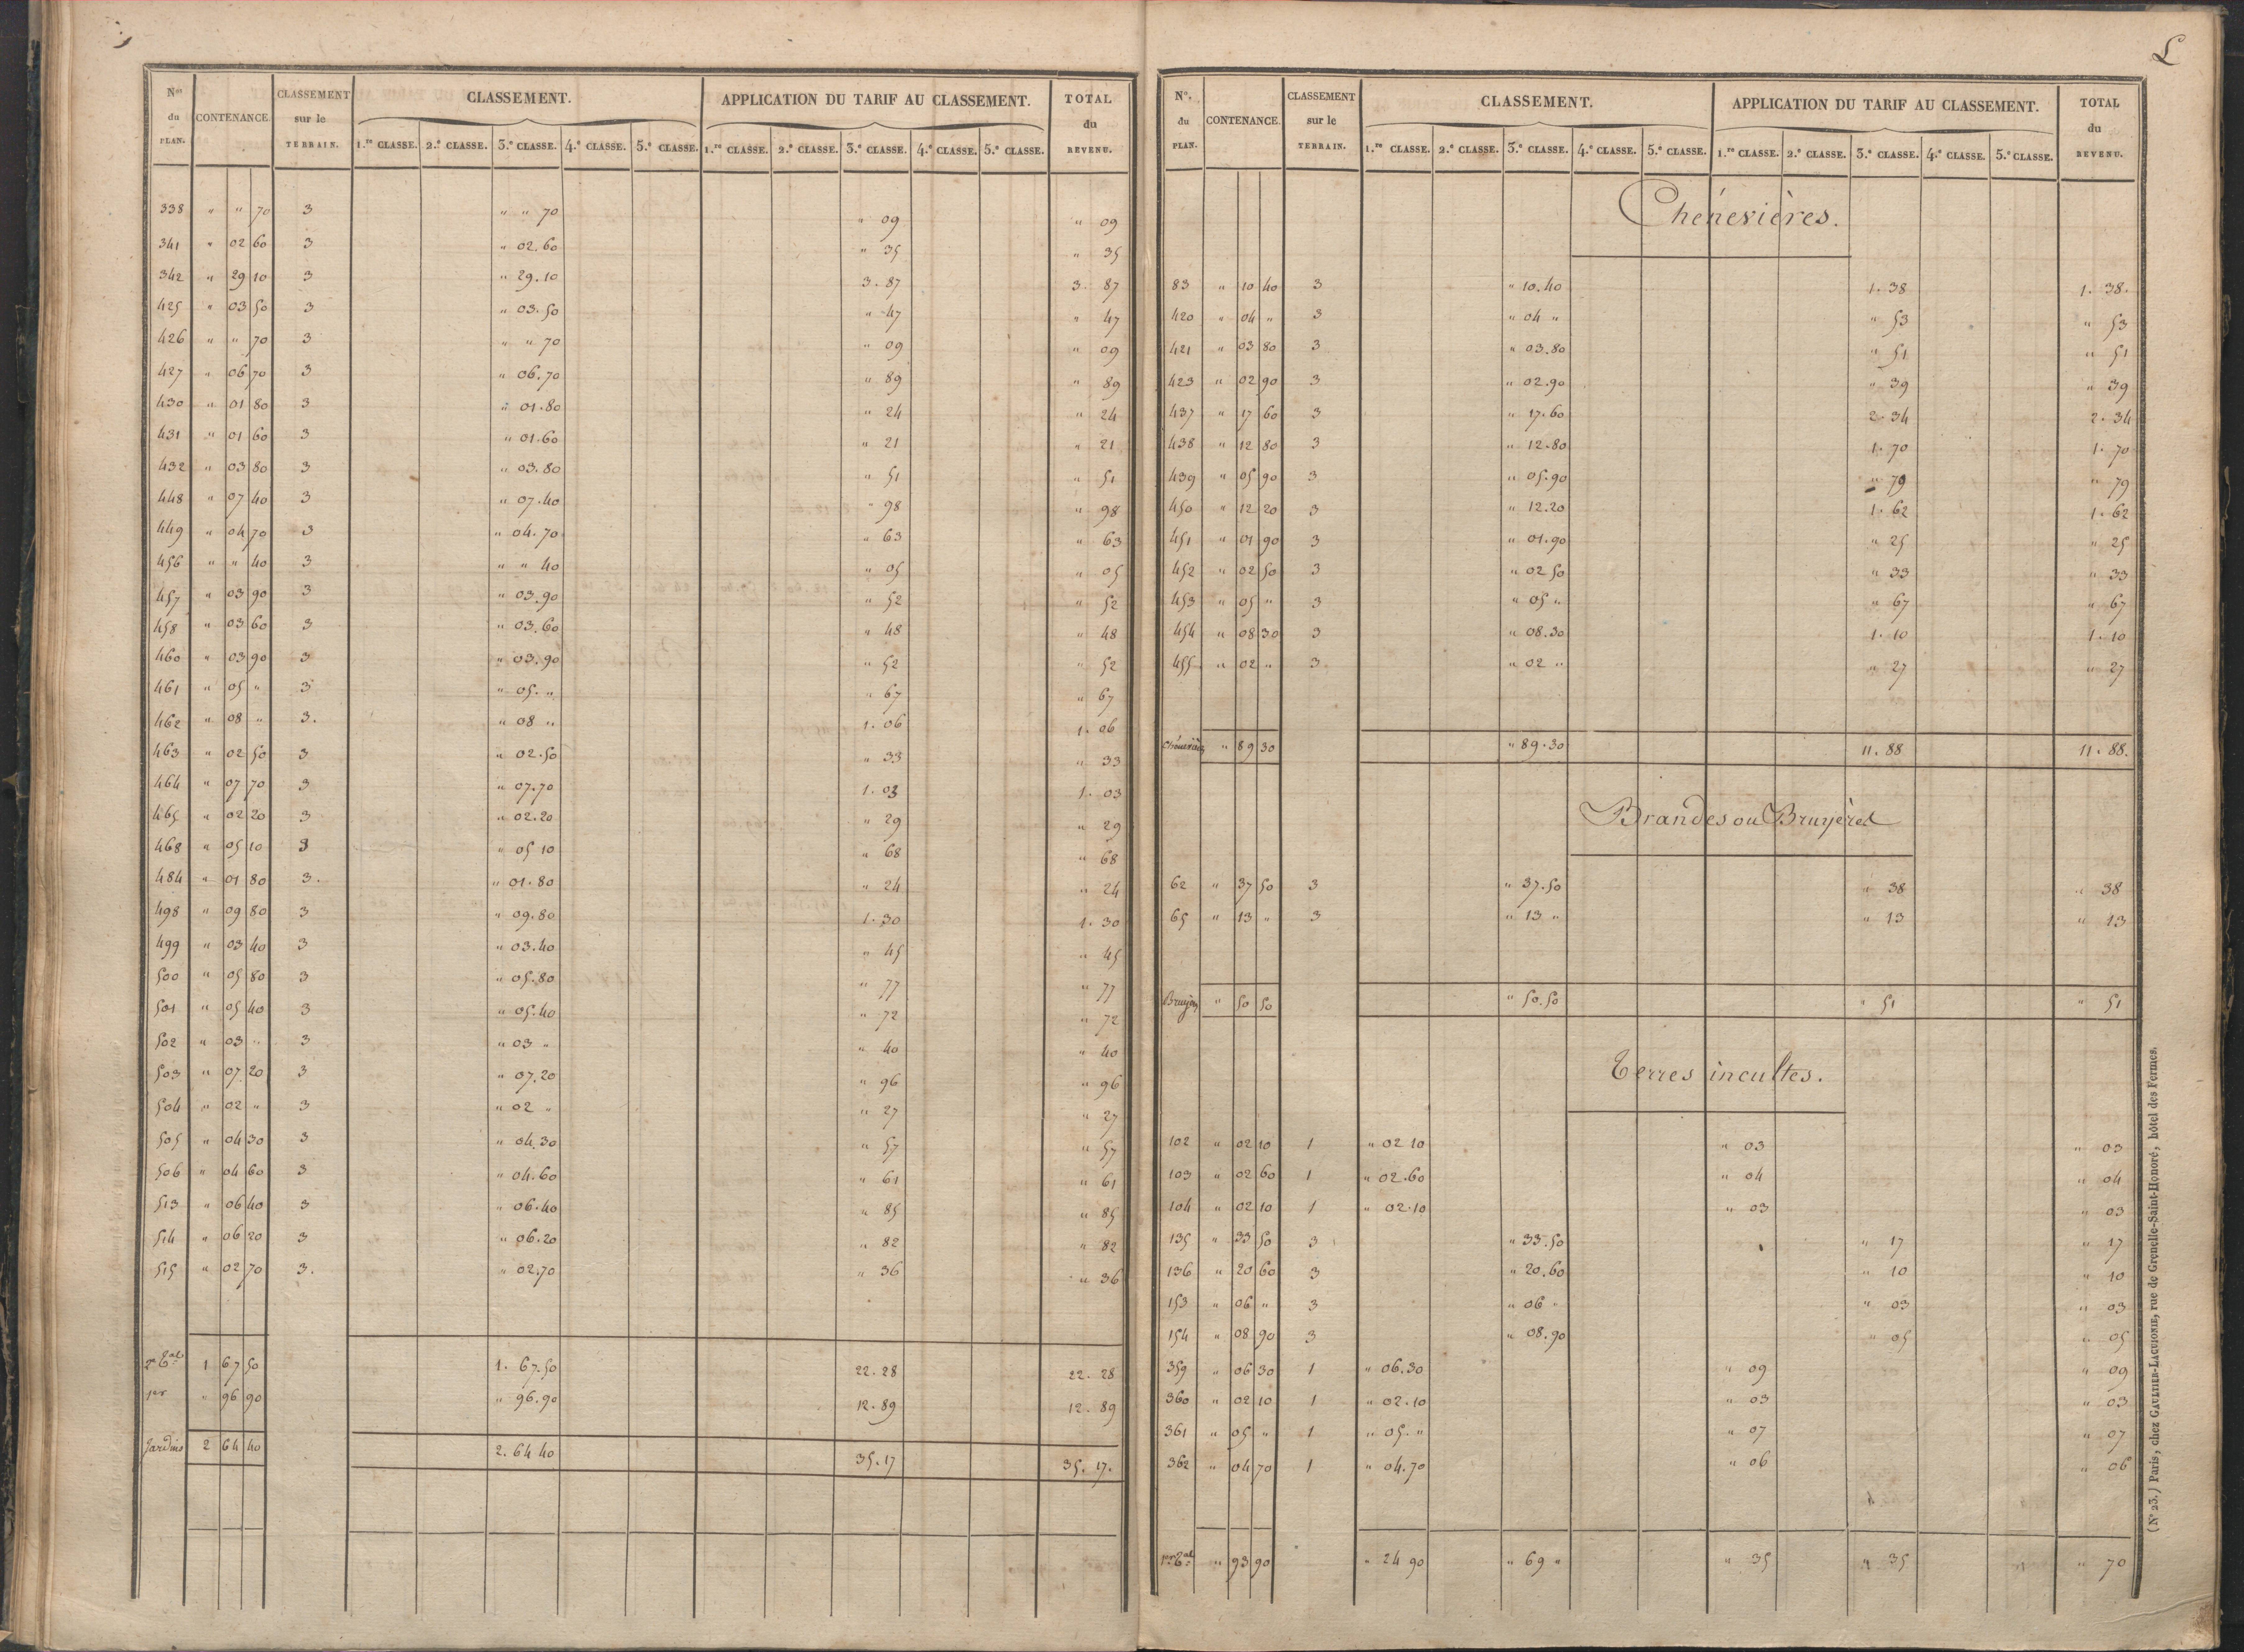 N.os du PLAN. CONTENANCE. CLASSEMENT sur le TERRAIN. CLASSEMENT. APPLICATION DU TARIF AU CLASSEMENT. TOTAL du REVENU.
1.re CLASSE. 2.e CLASSE. 3.e CLASSE. 4.e CLASSE. 5.e CLASSE. 1.re CLASSE. 2.e CLASSE. 3.e CLASSE. 4.e CLASSE. 5.e CLASSE.
338 " " 70 3 " " 70 " 09 " 09
341 " 02 60 3 " 02.60 " 35 " 35
342 " 29 10 3 " 29.10 3.87 3.87
425 " 03 50 3 " 03.50 " 47 " 47
426 " " 70 3 " " 70 " 09 " 09
427 " 06 70 3 " 06.70 " 89 " 89
430 " 01 80 3 " 01.80 " 24 " 24
431 " 01 60 3 " 01.60 " 21 " 21
432 " 03 80 3 " 03.80 " 51 " 51
448 " 07 40 3 " 07.40 " 98 " 98
449 " 04 70 3 " 04.70 " 63 " 63
456 " " 40 3 " " 40 " 05 " 05
457 " 03 90 3 " 03.90 " 52 " 52
458 " 03 60 3 " 03.60 " 48 " 48
460 " 03 90 3 " 03.90 " 52 " 52
461 " 05 " 3 " 05. " " 67 " 67
462 " 08 " 3. " 08 " 1.06 1.06
463 " 02 50 3 " 02.50 " 33 " 33
464 " 07 70 3 " 07.70 1.03 1.03
465 " 02 20 3 " 02.20 " 29 " 29
468 " 05 10 3 " 05 10 " 68 " 68
484 " 01 80 3. " 01.80 " 24 " 24
498 " 09 80 3 " 09.80 1.30 1.30
499 " 03 40 3 " 03.40 " 45 " 45
500 " 05 80 3 " 05.80 " 77 " 77
501 " 05 40 3 " 05.40 " 72 " 72
502 " 03 " 3 " 03 " " 40 " 40
503 " 07 20 3 " 07.20 " 96 " 96
504 " 02 " 3 " 02 " " 27 " 27
505 " 04 30 3 " 04.30 " 57 " 57
506 " 04 60 3 " 04.60 " 61 " 61
513 " 06 40 3 " 06.40 " 85 " 85
514 " 06 20 3 " 06.20 " 82 " 82
515 " 02 70 3. " 02.70 " 36 " 36
2e Tal 1 67 50 1.67.50 22.28 22.28
1er " 96 90 " 96.90 12.89 12.89
Jardins 2 64 40 2.64 40 35.17 35.17.
N.o du PLAN. CONTENANCE. CLASSEMENT sur le TERRAIN. CLASSEMENT. APPLICATION DU TARIF AU CLASSEMENT. TOTAL du REVENU.
1.re CLASSE. 2.e CLASSE. 3.e CLASSE. 4.e CLASSE. 5.e CLASSE. 1.re CLASSE. 2.e CLASSE. 3.e CLASSE. 4.e CLASSE. 5.e CLASSE.
Chénevières.
83 " 10 40 3 " 10.40 1.38 1.38.
420 " 04 " 3 " 04 " " 53 " 53
421 " 03 80 3 " 03.80 " 51 " 51
423 " 02 90 3 " 02.90 " 39 " 39
437 " 17 60 3 " 17.60 2.34 2.34
438 " 12 80 3 " 12.80 1.70 1.70
439 " 05 90 3 " 05.90 " 79 " 79
450 " 12 20 3 " 12.20 1.62 1.62
451 " 01 90 3 " 01.90 " 25 " 25
452 " 02 50 3 " 02 50 " 33 " 33
453 " 05 " 3 " 05 " " 67 " 67
454 " 08 30 3 " 08.30 1.10 1.10
455 " 02 " 3 " 02 " " 27 " 27
Chénevières " 89 30 " 89.30 11.88 11.88.
Brandes ou Bruyères
62 " 37 50 3 " 37.50 " 38 " 38
65 " 13 " 3 " 13 " " 13 " 13
" 50 50 " 50.50 " 51 " 51
Terres incultes.
102 " 02 10 1 " 02 10 " 03 " 03
103 " 02 60 1 " 02.60 " 04 " 04
104 " 02 10 1 " 02.10 " 03 " 03
135 " 33 50 3 " 33.50 " 17 " 17
136 " 20 60 3 " 20.60 " 10 " 10
153 " 06 " 3 " 06 " " 03 " 03
154 " 08 90 3 " 08.90 " 05 " 05
359 " 06 30 1 " 06.30 " 09 " 09
360 " 02 10 1 " 02.10 " 03 " 03
361 " 05 " 1 " 05. " " 07 " 07
362 " 04 70 1 " 04.70 " 06 " 06
1er Tal " 93 90 " 24 90 " 69 " " 35 " 35 " " 70
(N° 23.) Paris, chez GAULTIER-LAGUIONIE, rue de Grenelle-Saint-Honoré, hôtel des Fermes.